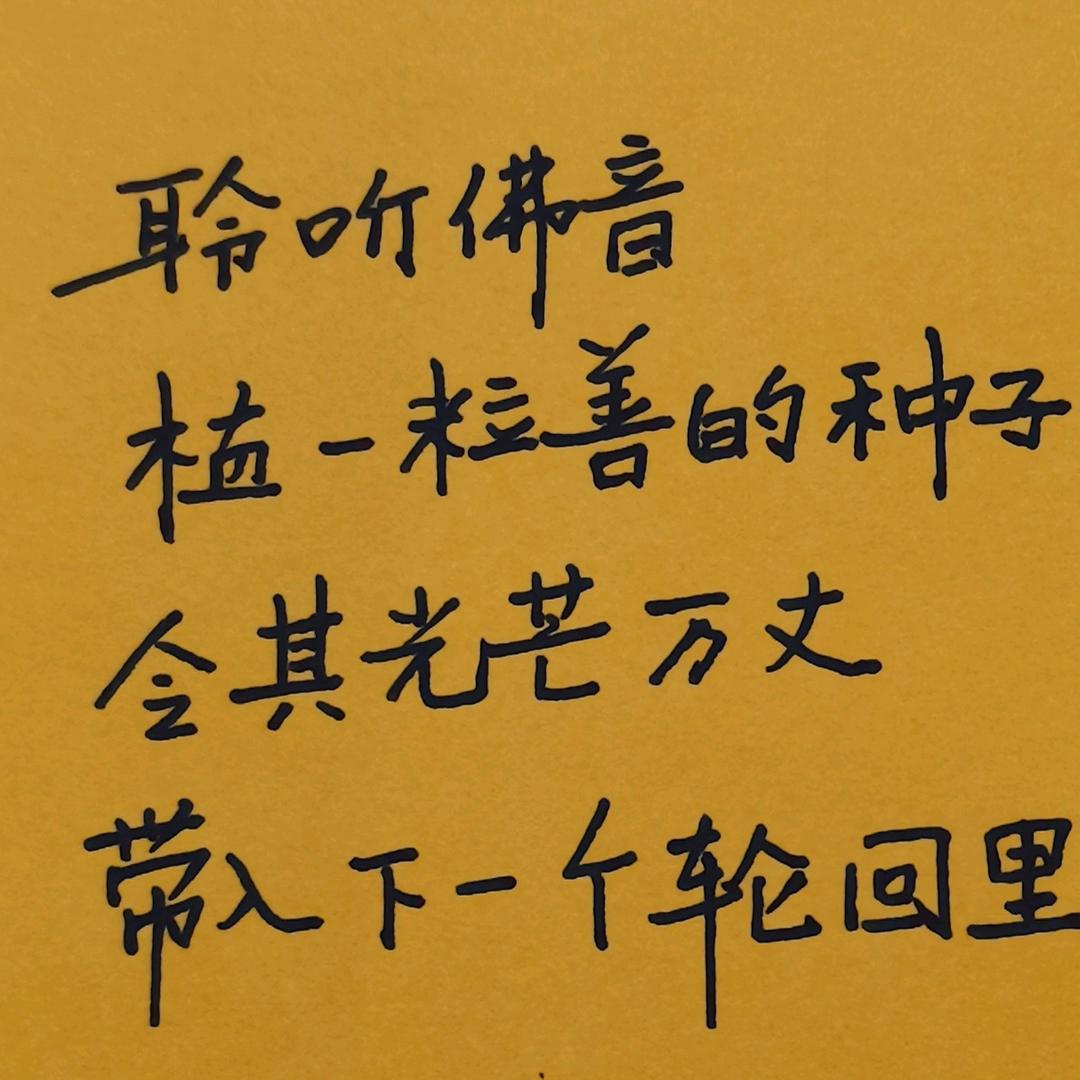 聆听佛音
植一粒善的种子
令其光芒万丈
带入下一个轮回里